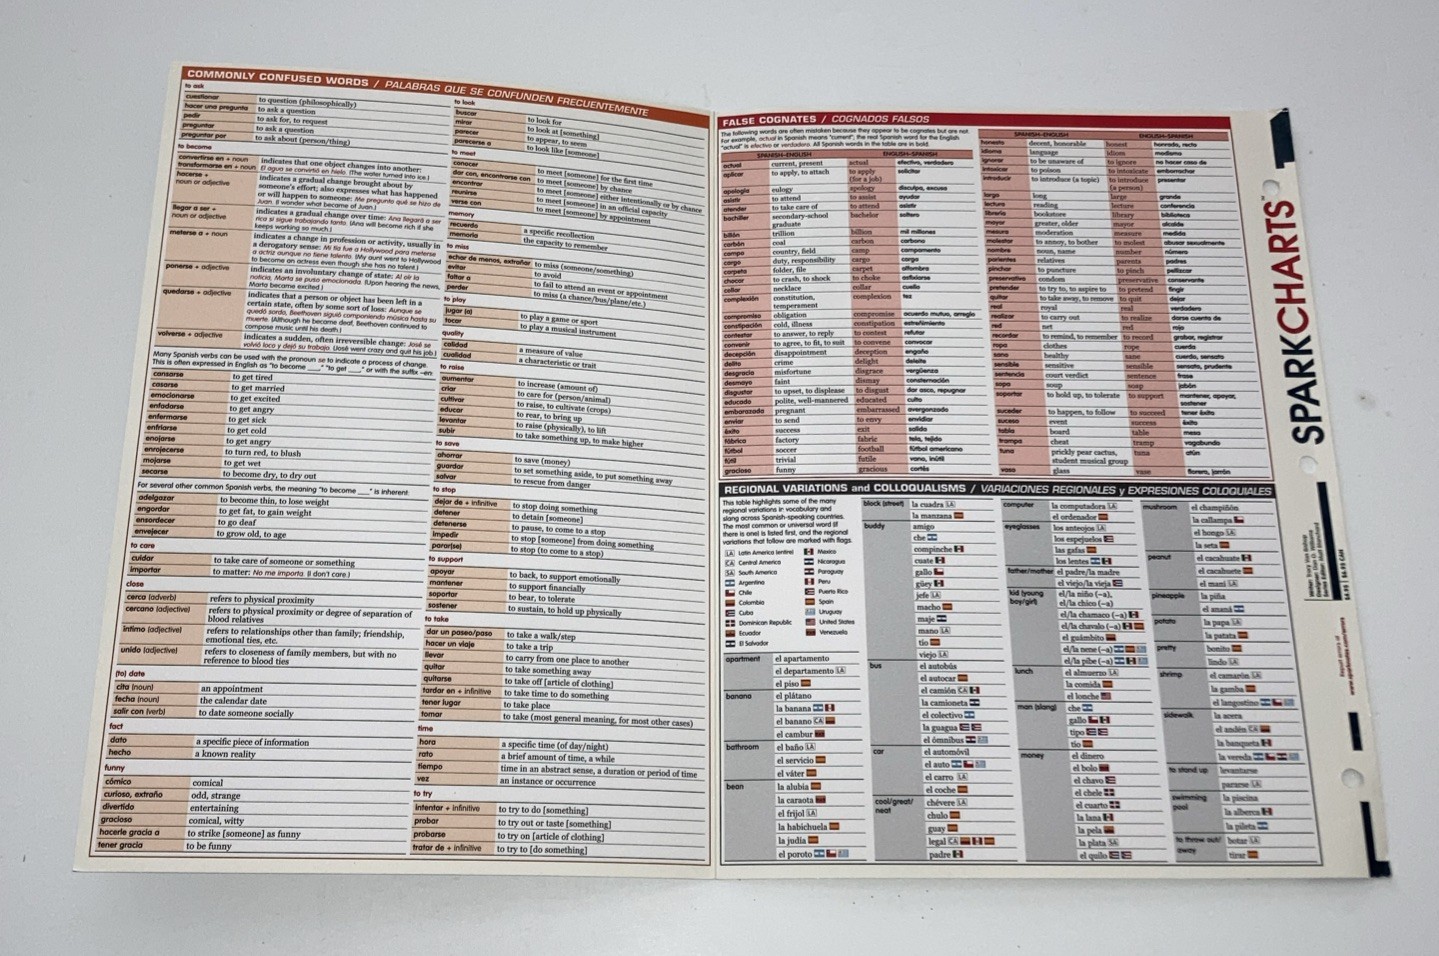 COMMONLY CONFUSED WORDS / PALABRAS QUE SE CONFUNDEN FRECUENTEMENTE
to ask
cuestionar to question (philosophically)
hacer una pregunta to ask a question
pedir to ask for, to request
preguntar to ask a question
preguntar por to ask about (person/thing)
to become
convertirse en + noun
transformarse en + noun
indicates that one object changes into another:
El agua se convirtió en hielo. (The water turned into ice.)
hacerse +
noun or adjective
indicates a gradual change brought about by
someone's effort; also expresses what has happened
or will happen to someone: Me pregunto qué se hizo de
Juan. (I wonder what became of Juan.)
llegar a ser +
noun or adjective
indicates a gradual change over time: Ana llegará a ser
rica si sigue trabajando tanto. (Ana will become rich if she
keeps working so much.)
meterse a + noun
indicates a change in profession or activity, usually in
a derogatory sense: Mi tía fue a Hollywood para meterse
a actriz aunque no tiene talento. (My aunt went to Hollywood
to become an actress even though she has no talent.)
ponerse + adjective
indicates an involuntary change of state: Al oír la
noticia, Marta se puso emocionada. (Upon hearing the news,
Marta became excited.)
quedarse + adjective
indicates that a person or object has been left in a
certain state, often by some sort of loss: Aunque se
quedó sordo, Beethoven siguió componiendo música hasta su
muerte. (Although he became deaf, Beethoven continued to
compose music until his death.)
volverse + adjective
indicates a sudden, often irreversible change: José se
volvió loco y dejó su trabajo. (José went crazy and quit his job.)
Many Spanish verbs can be used with the pronoun se to indicate a process of change.
This is often expressed in English as "to become ___," "to get ___," or with the suffix –en:
cansarse to get tired
casarse to get married
emocionarse to get excited
enfadarse to get angry
enfermarse to get sick
enfriarse to get cold
enojarse to get angry
enrojecerse to turn red, to blush
mojarse to get wet
secarse to become dry, to dry out
For several other common Spanish verbs, the meaning "to become ___" is inherent.
adelgazar to become thin, to lose weight
engordar to get fat, to gain weight
ensordecer to go deaf
envejecer to grow old, to age
to care
cuidar to take care of someone or something
importar to matter: No me importa. (I don't care.)
close
cerca (adverb) refers to physical proximity
cercano (adjective) refers to physical proximity or degree of separation of
blood relatives
íntimo (adjective) refers to relationships other than family; friendship,
emotional ties, etc.
unido (adjective) refers to closeness of family members, but with no
reference to blood ties
(to) date
cita (noun) an appointment
fecha (noun) the calendar date
salir con (verb) to date someone socially
fact
dato a specific piece of information
hecho a known reality
funny
cómico comical
curioso, extraño odd, strange
divertido entertaining
gracioso comical, witty
hacerle gracia a to strike [someone] as funny
tener gracia to be funny
to look
buscar to look for
mirar to look at [something]
parecer to appear, to seem
parecerse a to look like [someone]
to meet
conocer to meet [someone] for the first time
dar con, encontrarse con to meet [someone] by chance
encontrar to meet [someone] either intentionally or by chance
reunirse to meet [someone] in an official capacity
verse con to meet [someone] by appointment
memory
recuerdo a specific recollection
memoria the capacity to remember
to miss
echar de menos, extrañar to miss (someone/something)
evitar to avoid
faltar a to fail to attend an event or appointment
perder to miss (a chance/bus/plane/etc.)
to play
jugar (a) to play a game or sport
tocar to play a musical instrument
quality
calidad a measure of value
cualidad a characteristic or trait
to raise
aumentar to increase (amount of)
criar to care for (person/animal)
cultivar to raise, to cultivate (crops)
educar to rear, to bring up
levantar to raise (physically), to lift
subir to take something up, to make higher
to save
ahorrar to save (money)
guardar to set something aside, to put something away
salvar to rescue from danger
to stop
dejar de + infinitive to stop doing something
detener to detain [someone]
detenerse to pause, to come to a stop
impedir to stop [someone] from doing something
parar(se) to stop (to come to a stop)
to support
apoyar to back, to support emotionally
mantener to support financially
soportar to bear, to tolerate
sostener to sustain, to hold up physically
to take
dar un paseo/paso to take a walk/step
hacer un viaje to take a trip
llevar to carry from one place to another
quitar to take something away
quitarse to take off [article of clothing]
tardar en + infinitive to take time to do something
tener lugar to take place
tomar to take (most general meaning, for most other cases)
time
hora a specific time (of day/night)
rato a brief amount of time, a while
tiempo time in an abstract sense, a duration or period of time
vez an instance or occurrence
to try
intentar + infinitive to try to do [something]
probar to try out or taste [something]
probarse to try on [article of clothing]
tratar de + infinitive to try to [do something]
FALSE COGNATES / COGNADOS FALSOS
The following words are often mistaken because they appear to be cognates but are not.
For example, actual in Spanish means "current"; the real Spanish word for the English
"actual" is efectivo or verdadero. All Spanish words in the table are in bold.
SPANISH–ENGLISH ENGLISH–SPANISH
actual current, present actual efectivo, verdadero
aplicar to apply, to attach to apply
(for a job) solicitar
apología eulogy apology disculpa, excusa
asistir to attend to assist ayudar
atender to take care of to attend asistir
bachiller secondary-school
graduate bachelor soltero
billón trillion billion mil millones
carbón coal carbon carbono
campo country, field camp campamento
cargo duty, responsibility cargo carga
carpeta folder, file carpet alfombra
chocar to crash, to shock to choke asfixiarse
collar necklace collar cuello
complexión constitution,
temperament complexion tez
compromiso obligation compromise acuerdo mutuo, arreglo
constipación cold, illness constipation estreñimiento
contestar to answer, to reply to contest refutar
convenir to agree, to fit, to suit to convene convocar
decepción disappointment deception engaño
delito crime delight deleite
desgracia misfortune disgrace vergüenza
desmayo faint dismay consternación
disgustar to upset, to displease to disgust dar asco, repugnar
educado polite, well-mannered educated culto
embarazada pregnant embarrassed avergonzado
enviar to send to envy envidiar
éxito success exit salida
fábrica factory fabric tela, tejido
fútbol soccer football fútbol americano
fútil trivial futile vano, inútil
gracioso funny gracious cortés
SPANISH–ENGLISH ENGLISH–SPANISH
honesto decent, honorable honest honrado, recto
idioma language idiom modismo
ignorar to be unaware of to ignore no hacer caso de
intoxicar to poison to intoxicate emborrachar
introducir to introduce (a topic) to introduce
(a person) presentar
largo long large grande
lectura reading lecture conferencia
librería bookstore library biblioteca
mayor greater, older mayor alcalde
mesura moderation measure medida
molestar to annoy, to bother to molest abusar sexualmente
nombre noun, name number número
parientes relatives parents padres
pinchar to puncture to pinch pellizcar
preservativo condom preservative conservante
pretender to try to, to aspire to to pretend fingir
quitar to take away, to remove to quit dejar
real royal real verdadero
realizar to carry out to realize darse cuenta de
red net red rojo
recordar to remind, to remember to record grabar, registrar
ropa clothes rope cuerda
sano healthy sane cuerdo, sensato
sensible sensitive sensible sensato, prudente
sentencia court verdict sentence frase
sopa soup soap jabón
soportar to hold up, to tolerate to support mantener, apoyar,
sostener
suceder to happen, to follow to succeed tener éxito
suceso event success éxito
tabla board table mesa
trampa cheat tramp vagabundo
tuna prickly pear cactus,
student musical group tuna atún
vaso glass vase florero, jarrón
REGIONAL VARIATIONS and COLLOQUALISMS / VARIACIONES REGIONALES y EXPRESIONES COLOQUIALES
This table highlights some of the many
regional variations in vocabulary and
slang across Spanish-speaking countries.
The most common or universal word (if
there is one) is listed first, and the regional
variations that follow are marked with flags.
LA Latin America (entire)
CA Central America
SA South America
Argentina
Chile
Colombia
Cuba
Dominican Republic
Ecuador
El Salvador
Mexico
Nicaragua
Paraguay
Peru
Puerto Rico
Spain
Uruguay
United States
Venezuela
apartment el apartamento
el departamento LA
el piso
banana el plátano
la banana
el banano CA
el cambur
bathroom el baño LA
el servicio
el váter
bean la alubia
la caraota
el frijol LA
la habichuela
la judía
el poroto
block (street) la cuadra LA
la manzana
buddy amigo
che
compinche
cuate
gallo
güey
jefe LA
macho
maje
mano LA
tío
viejo LA
bus el autobús
el autocar
el camión CA
la camioneta
el colectivo
la guagua
el ómnibus
car el automóvil
el auto
el carro LA
el coche
cool/great/
neat
chévere LA
chulo
guay
legal CA
padre
computer la computadora LA
el ordenador
eyeglasses los anteojos LA
los espejuelos
las gafas
los lentes
father/mother el padre/la madre
el viejo/la vieja
kid (young
boy/girl)
el/la niño (–a),
el/la chico (–a)
el/la chamaco (–a)
el/la chavalo (–a)
el guámbito
el/la nene (–a)
el/la pibe (–a)
lunch el almuerzo LA
la comida
el lonche
man (slang) che
gallo
tipo
tío
money el dinero
el bolo
el chavo
el chele
el cuarto
la lana
la pela
la plata SA
el quilo
mushroom el champiñón
la callampa
el hongo LA
la seta
peanut el cacahuate
el cacahuete
el maní LA
pineapple la piña
el ananá
potato la papa LA
la patata
pretty bonito
lindo LA
shrimp el camarón LA
la gamba
el langostino
sidewalk la acera
el andén CA
la banqueta
la vereda
to stand up levantarse
pararse LA
swimming
pool
la piscina
la alberca
la pileta
to throw out/
away
botar LA
tirar
SPARKCHARTS™
Report errors at
www.sparknotes.com/errors